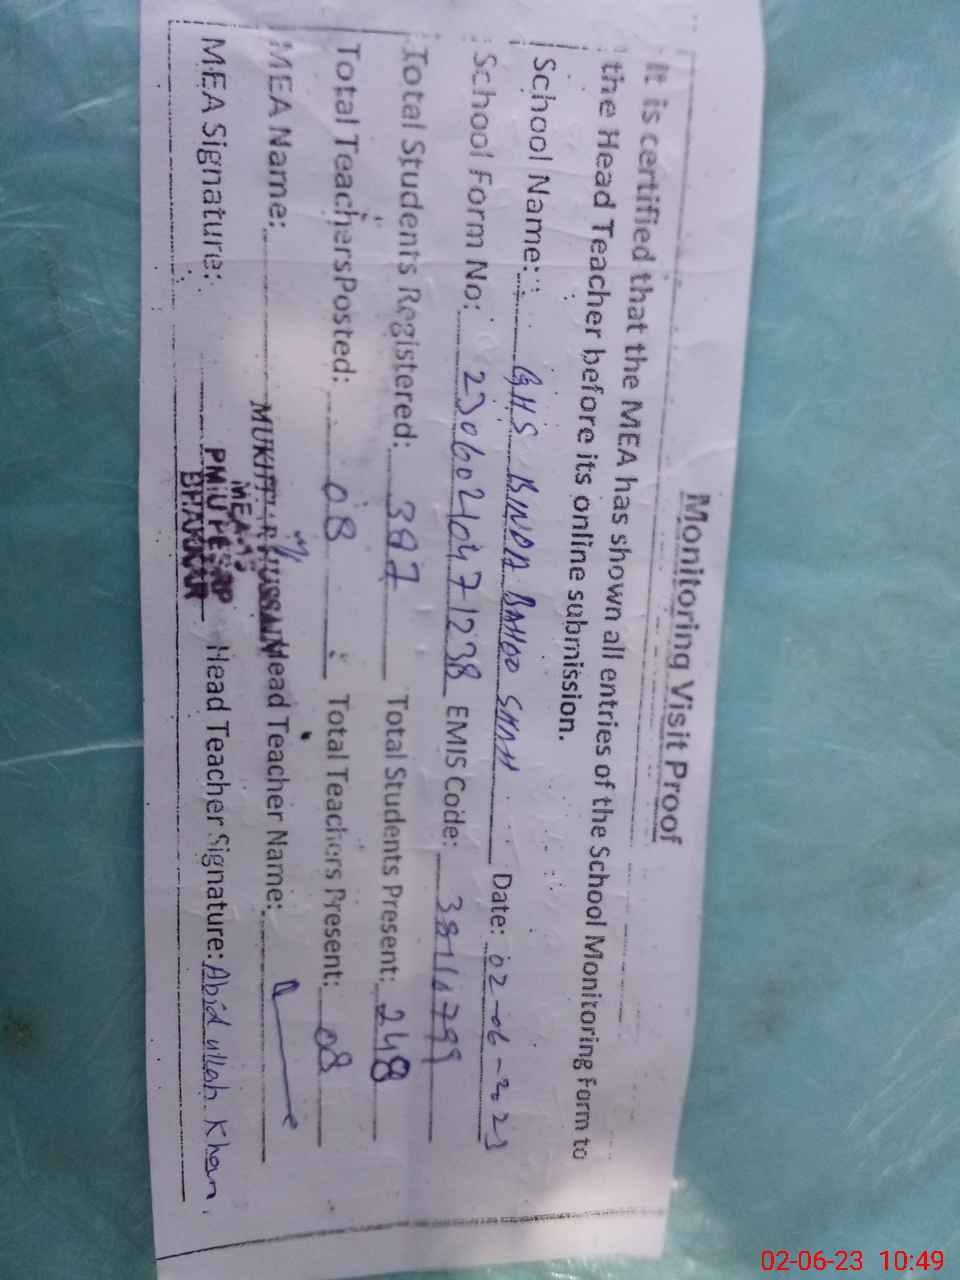 Monitoring Visit Proof
It is certified that the MEA has shown all entries of the School Monitoring Form to
the Head Teacher before its online submission.
School Name: GHS BINDA BAHOO SHAH Date: 02-06-2023
School Form No: 23060240471238 EMIS Code:
Total Students Registered: 387 Total Students Present: 248
Total TeachersPosted: 08 Total Teachers Present: 08
MEA Name: MUKHTIAR HUSSAIN Head Teacher Name:
MEA Signature: Head Teacher Signature: Abid ullah Khan
MEA
PMIU PESRP
BHAKKAR
02-06-23 10:49